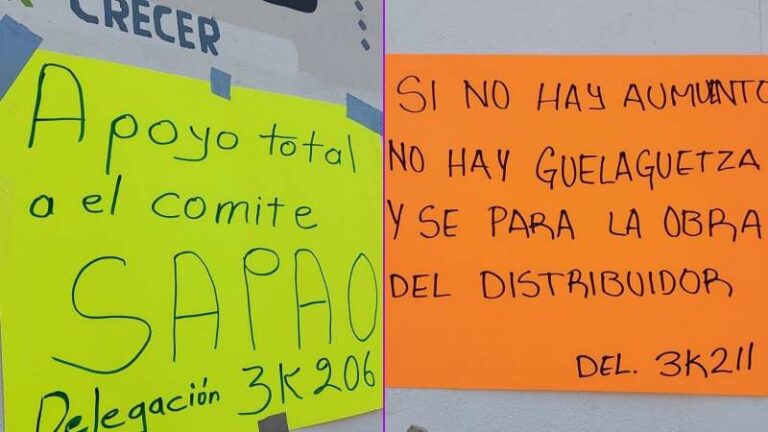 CRECER
Apoyo total
a el comite
SAPAO
Delegación 3K206
SI NO HAY AUMUENTO
NO HAY GUELAGUETZA
Y SE PARA LA OBRA
DEL DISTRIBUIDOR
DEL. 3K211